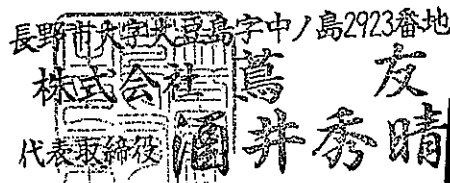 長野市大字大豆島字中ノ島2923番地
株式会社 蔦友
代表取締役 酒井秀晴